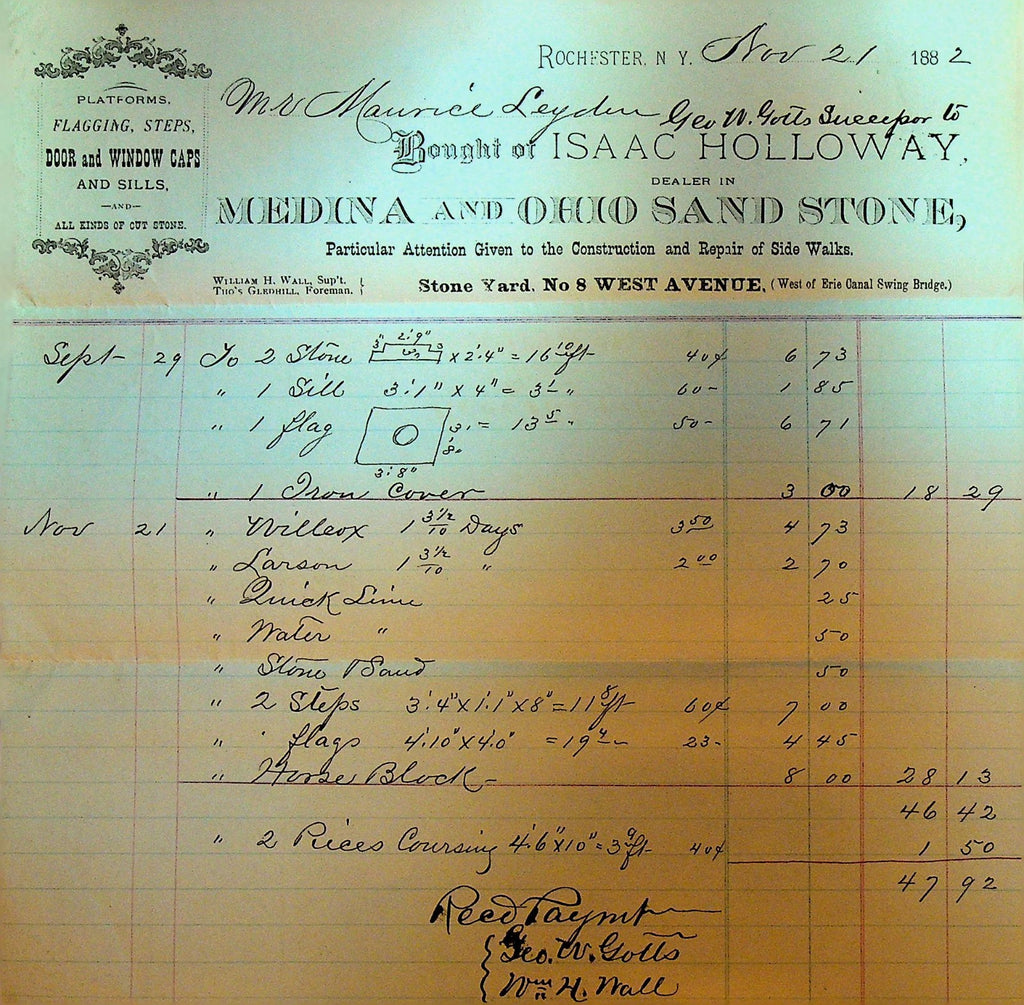 ROCHESTER, N. Y. Nov 21 1882
PLATFORMS,
FLAGGING, STEPS,
DOOR and WINDOW CAPS
AND SILLS,
—AND—
ALL KINDS OF CUT STONE.
Mr Maurice Leyden Geo W. Gotts Succepor to
Bought of ISAAC HOLLOWAY,
DEALER IN
MEDINA AND OHIO SAND STONE,
Particular Attention Given to the Construction and Repair of Side Walks.
WILLIAM H. WALL, Sup't.
THO'S GLEDHILL, Foreman.
Stone Yard, No 8 WEST AVENUE, (West of Erie Canal Swing Bridge.)
Sept 29 To 2 Stone 3" 2'.9" x 2'.4" = 16 10 ft 40¢ 6 73
" 1 Sill 3'.1" x 4" = 3 1 " 60 - 1 85
" 1 flag 3'.8" = 13 5 " 50 - 6 71
3'.8"
" 1 Iron Cover 3 00 18 29
Nov 21 " Willcox 1 3 1/2 / 10 Days 3 50 4 73
" Larson 1 3 1/2 / 10 " 2 00 2 70
" Quick Lime 25
" Water " 50
" Stone & Sand 50
" 2 Steps 3'.4" x 1'.1" x 8" = 11 8 ft 60¢ 7 00
" " flags 4'.10" x 4'.0" = 19 4 23 - 4 45
" Horse Block - 8 00 28 13
46 42
" 2 Pieces Coursing 4'.6" x 10" = 3 9 ft 40¢ 1 50
47 92
Recd Paymt
Geo. W. Gotts
Wm H. Wall